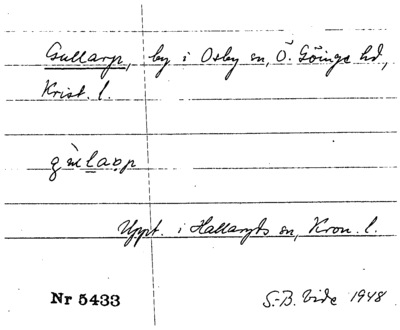 Gullarp, by i Osby sn, Ö. Göinge hd,
Krist. l.
gùlarp
Uppt. i Hallaryds sn, Kron. l.
Nr 5433 S.-B. Vide 1948